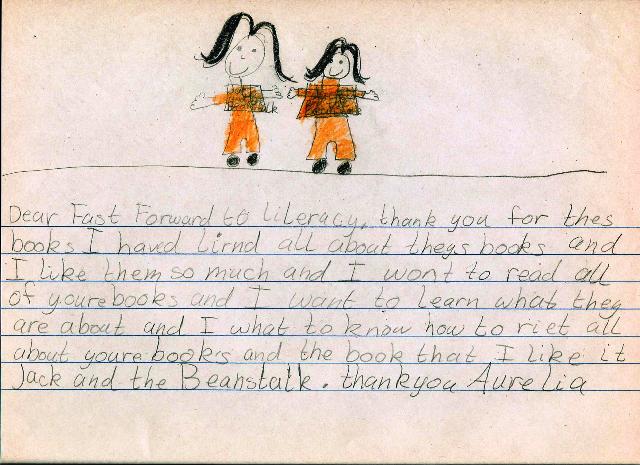 Dear Fast Forward to Literacy, thank you for thes
books I haved lirnd all about thegs books and
I like them so much and I wont to read all
of youre books and I want to learn what they
are about and I what to know how to riet all
about youre book's and the book that I like it
Jack and the Beanstalk. thankyou Aurelia